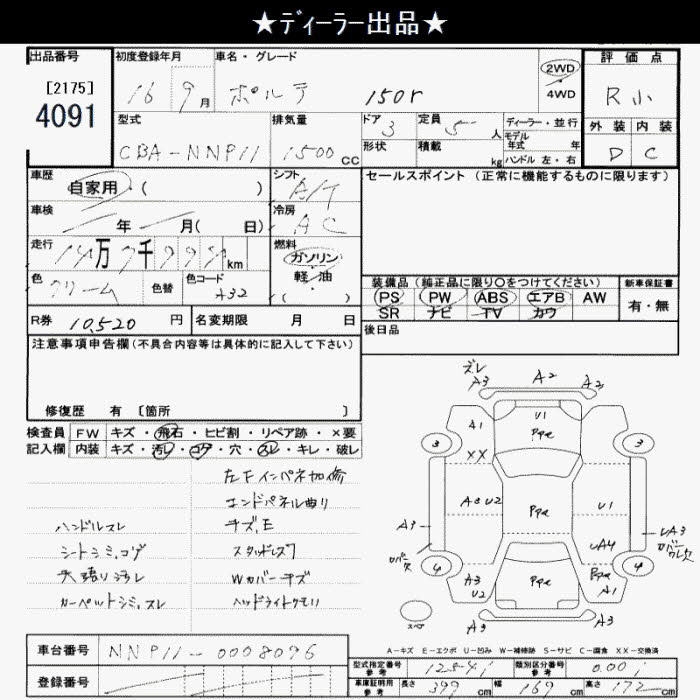 ★ディーラー出品★
出品番号
[2175]
4091
初度登録年月
16 9月
車名・グレード
ポルテ 150r
2WD
・
4WD
評価点
R小
外装 内装
D C
型式
CBA-NNP11
排気量
1500 cc
ドア 3
定員 5 人
形状
積載 kg
ディーラー・並行
モデル
年式 年
ハンドル 左・右
車歴
自家用・( )
シフト
A/T
セールスポイント(正常に機能するものに限ります)
車検
年 月( 日)
冷房
AC
走行
万 千 km
燃料
ガソリン
・
軽・油
( )
色
クリーム
色替
色コード
A32
装備品(純正品に限り○をつけてください)
新車保証書
PS PW ABS エアB AW
SR ナビ TV カワ
有・無
R券 10,520 円
名変期限 月 日
後日品
注意事項申告欄(不具合内容等は具体的に記入して下さい)
修復歴 有 [箇所 ]
検査員 FW キズ・飛石・ヒビ割・リペア跡・×要
記入欄 内装 キズ・汚レ・コゲ・穴・スレ・キレ・破レ
左Fインパネ加修
エンドパネル曲り
ハンドルスレ
キズ、E
シートシミ、コゲ
スタッドレス7
天張り汚レ
Wカバーキズ
カーペットシミ、スレ
ヘッドライトクモリ
ズレ
A3 A2 A2
A1 U1 Ppa
3 3
XX
Ppa
A3 U2 Ppa U1
A3 UA3
カバー欠 UA4 カバーワレ欠
4 4
A3 Ppa Ppa
U2 A1
スペア
A3 A3
A-キズ E-エクボ U-凹み W-補修跡 S-サビ C-腐食 XX-交換済
車台番号 NNP11-0008096
登録番号
型式指定番号
参考
類別区分番号
参考
車庫証明用
参考
長さ 399 cm 幅 169 cm 高さ 172 cm